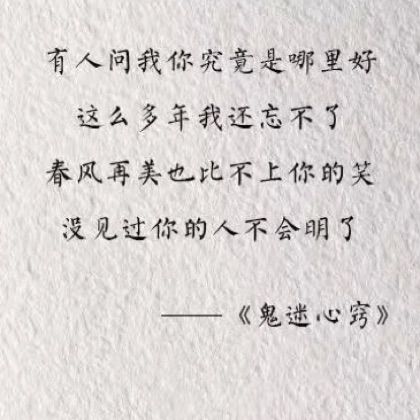 有人问我你究竟是哪里好
这么多年我还忘不了
春风再美也比不上你的笑
没见过你的人不会明了
——《鬼迷心窍》